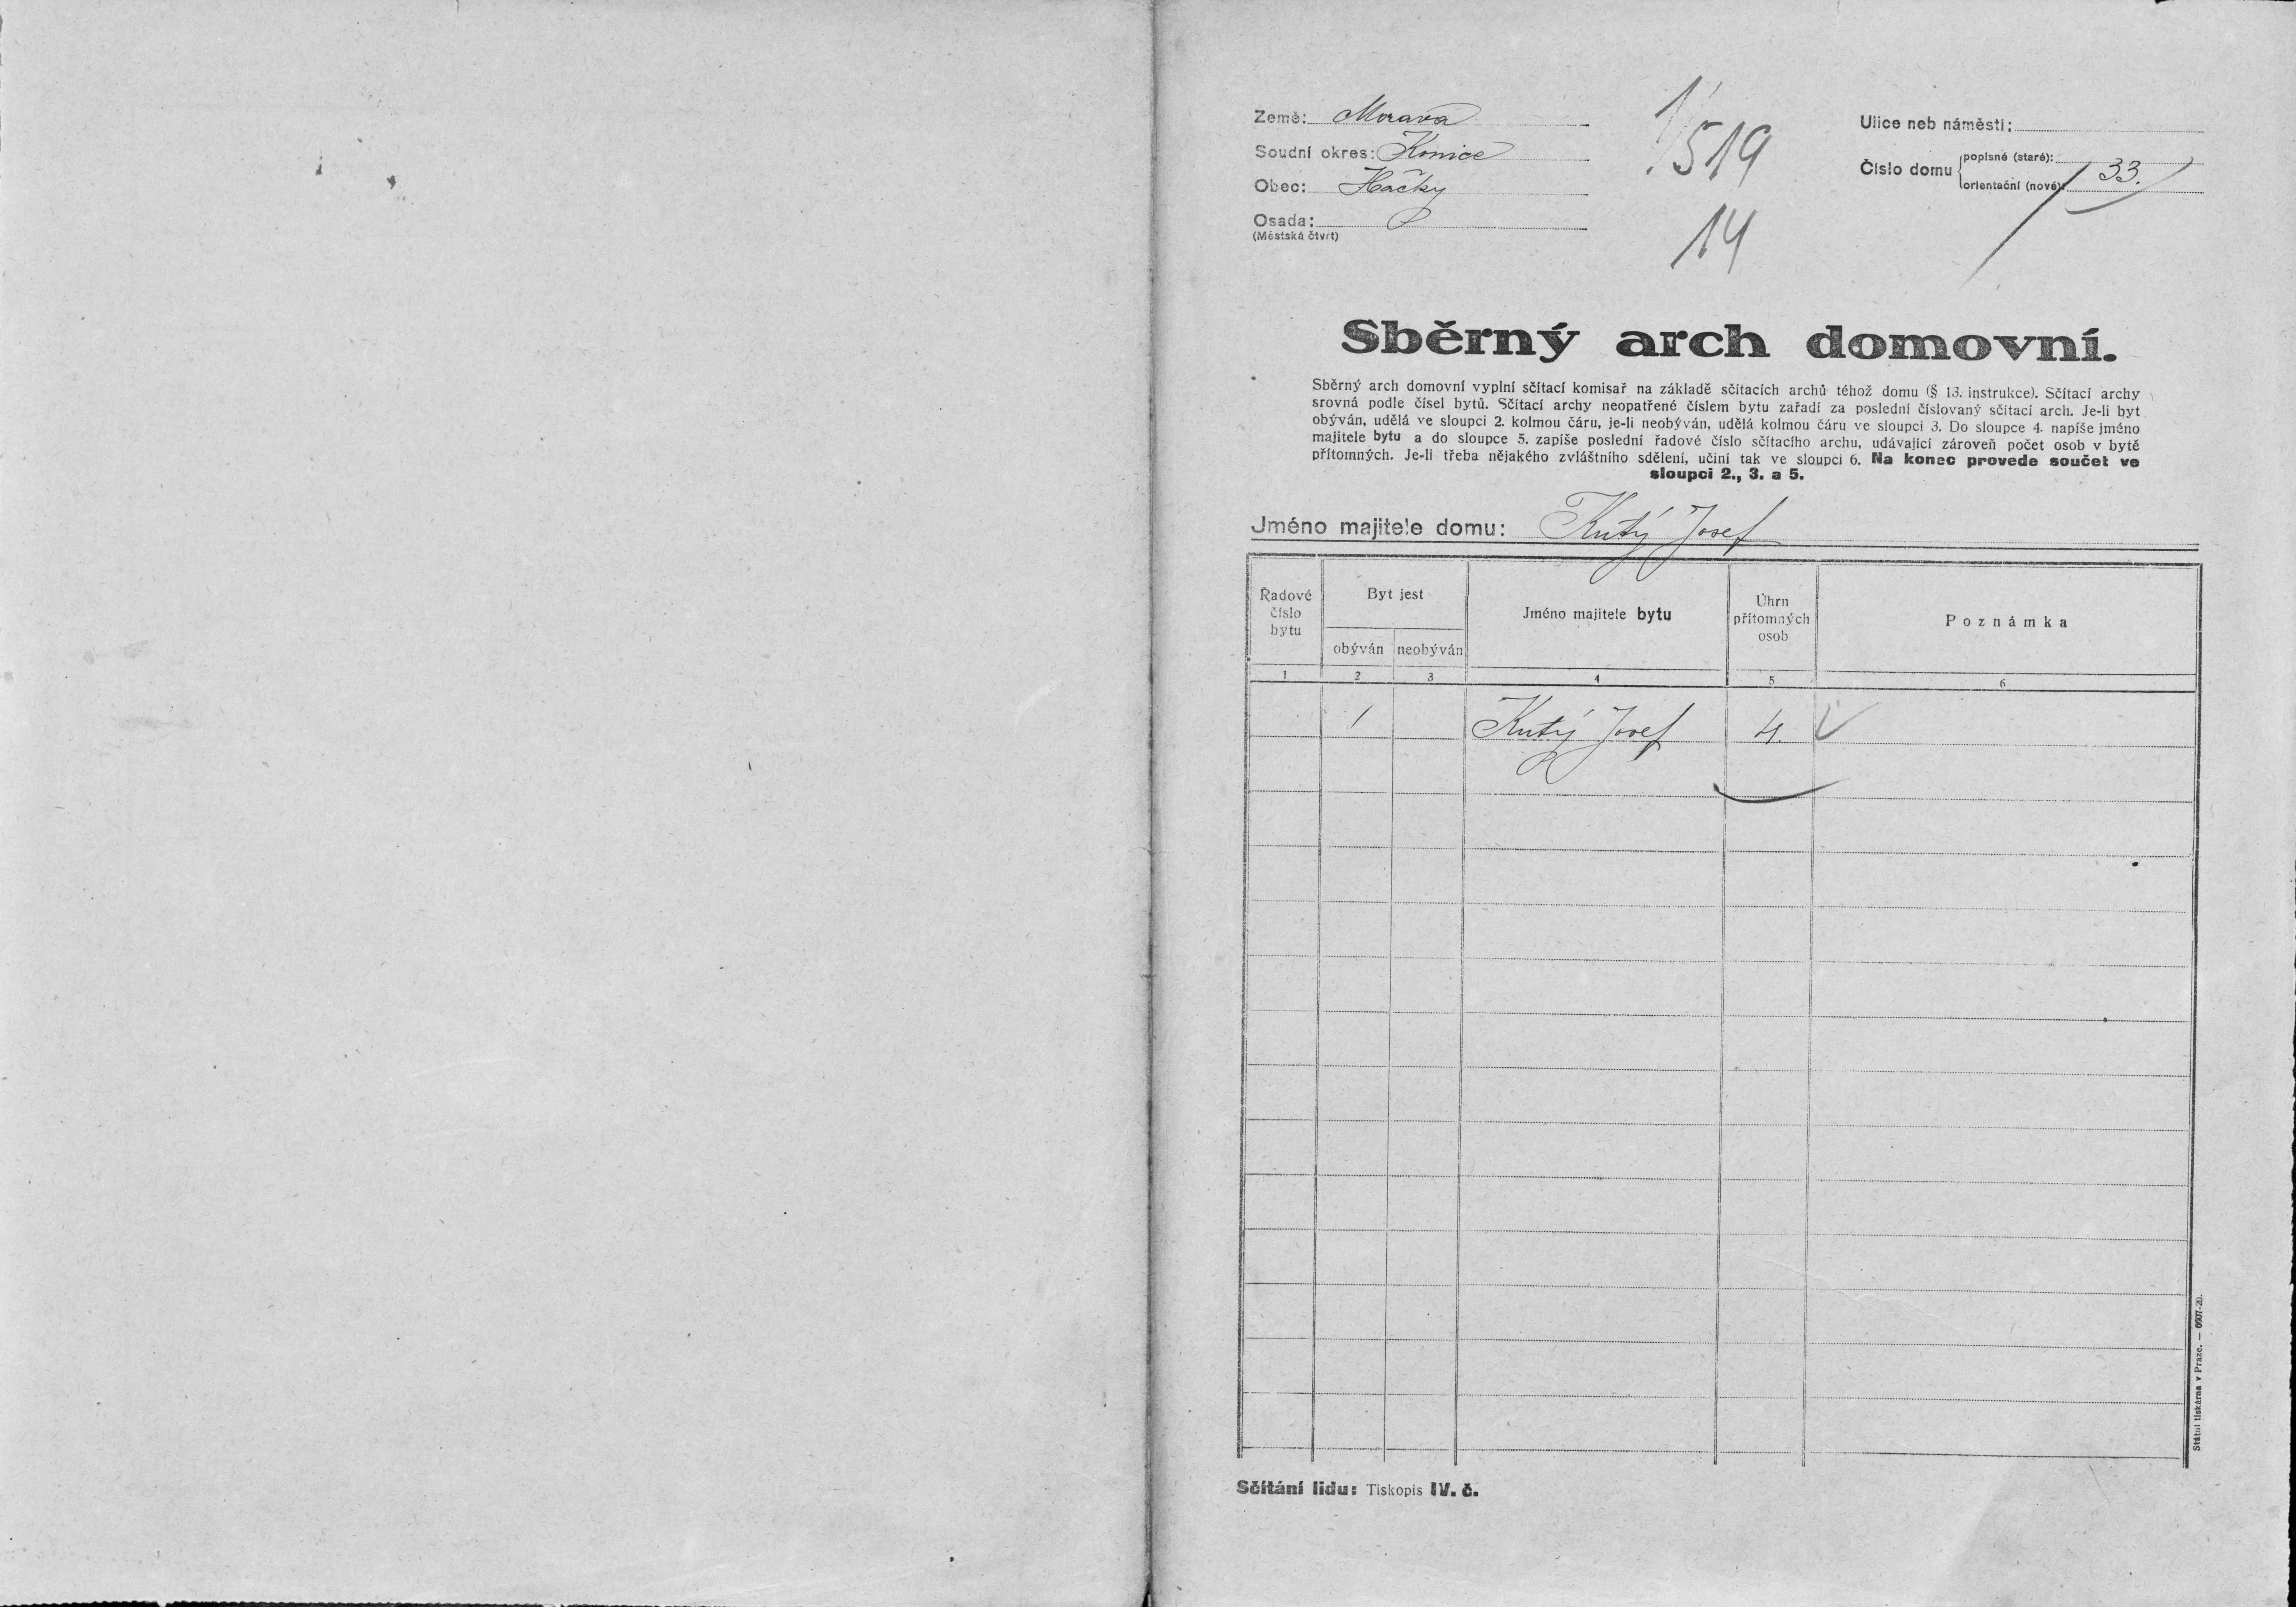 Země: Morava
Soudní okres: Konice
Obec: Hačky
Osada:
(Městská čtvrt)
1/
519
14
Ulice neb náměstí:
Číslo domu { popisné (staré):
orientační (nové): 33.
Sběrný arch domovní.
Sběrný arch domovní vyplní sčítací komisař na základě sčítacích archů téhož domu (§ 13. instrukce). Sčítací archy
srovná podle čísel bytů. Sčítací archy neopatřené číslem bytu zařadí za poslední číslovaný sčítací arch. Je-li byt
obýván, udělá ve sloupci 2. kolmou čáru, je-li neobýván, udělá kolmou čáru ve sloupci 3. Do sloupce 4. napíše jméno
majitele bytu a do sloupce 5. zapíše poslední řadové číslo sčítacího archu, udávající zároveň počet osob v bytě
přítomných. Je-li třeba nějakého zvláštního sdělení, učiní tak ve sloupci 6. Na konec provede součet ve
sloupci 2., 3. a 5.
Jméno majitele domu: Kutý Josef
Řadové číslo bytu
Byt jest
obýván
neobýván
Jméno majitele bytu
Úhrn přítomných osob
Poznámka
1 2 3 4 5 6
1 Kutý Josef 4.
Státní tiskárna v Praze. — 6607-20.
Sčítání lidu: Tiskopis IV. č.